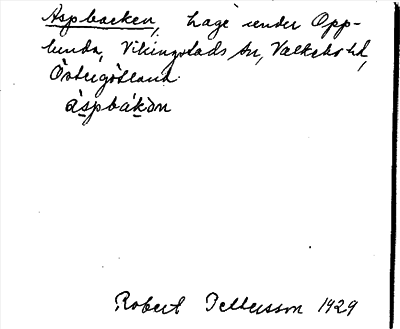 Aspbacken, hage under Opp-
lunda, Vikingstads sn, Valkebo hd,
Östergötland.
àspbákən
Robert Pettersson 1929